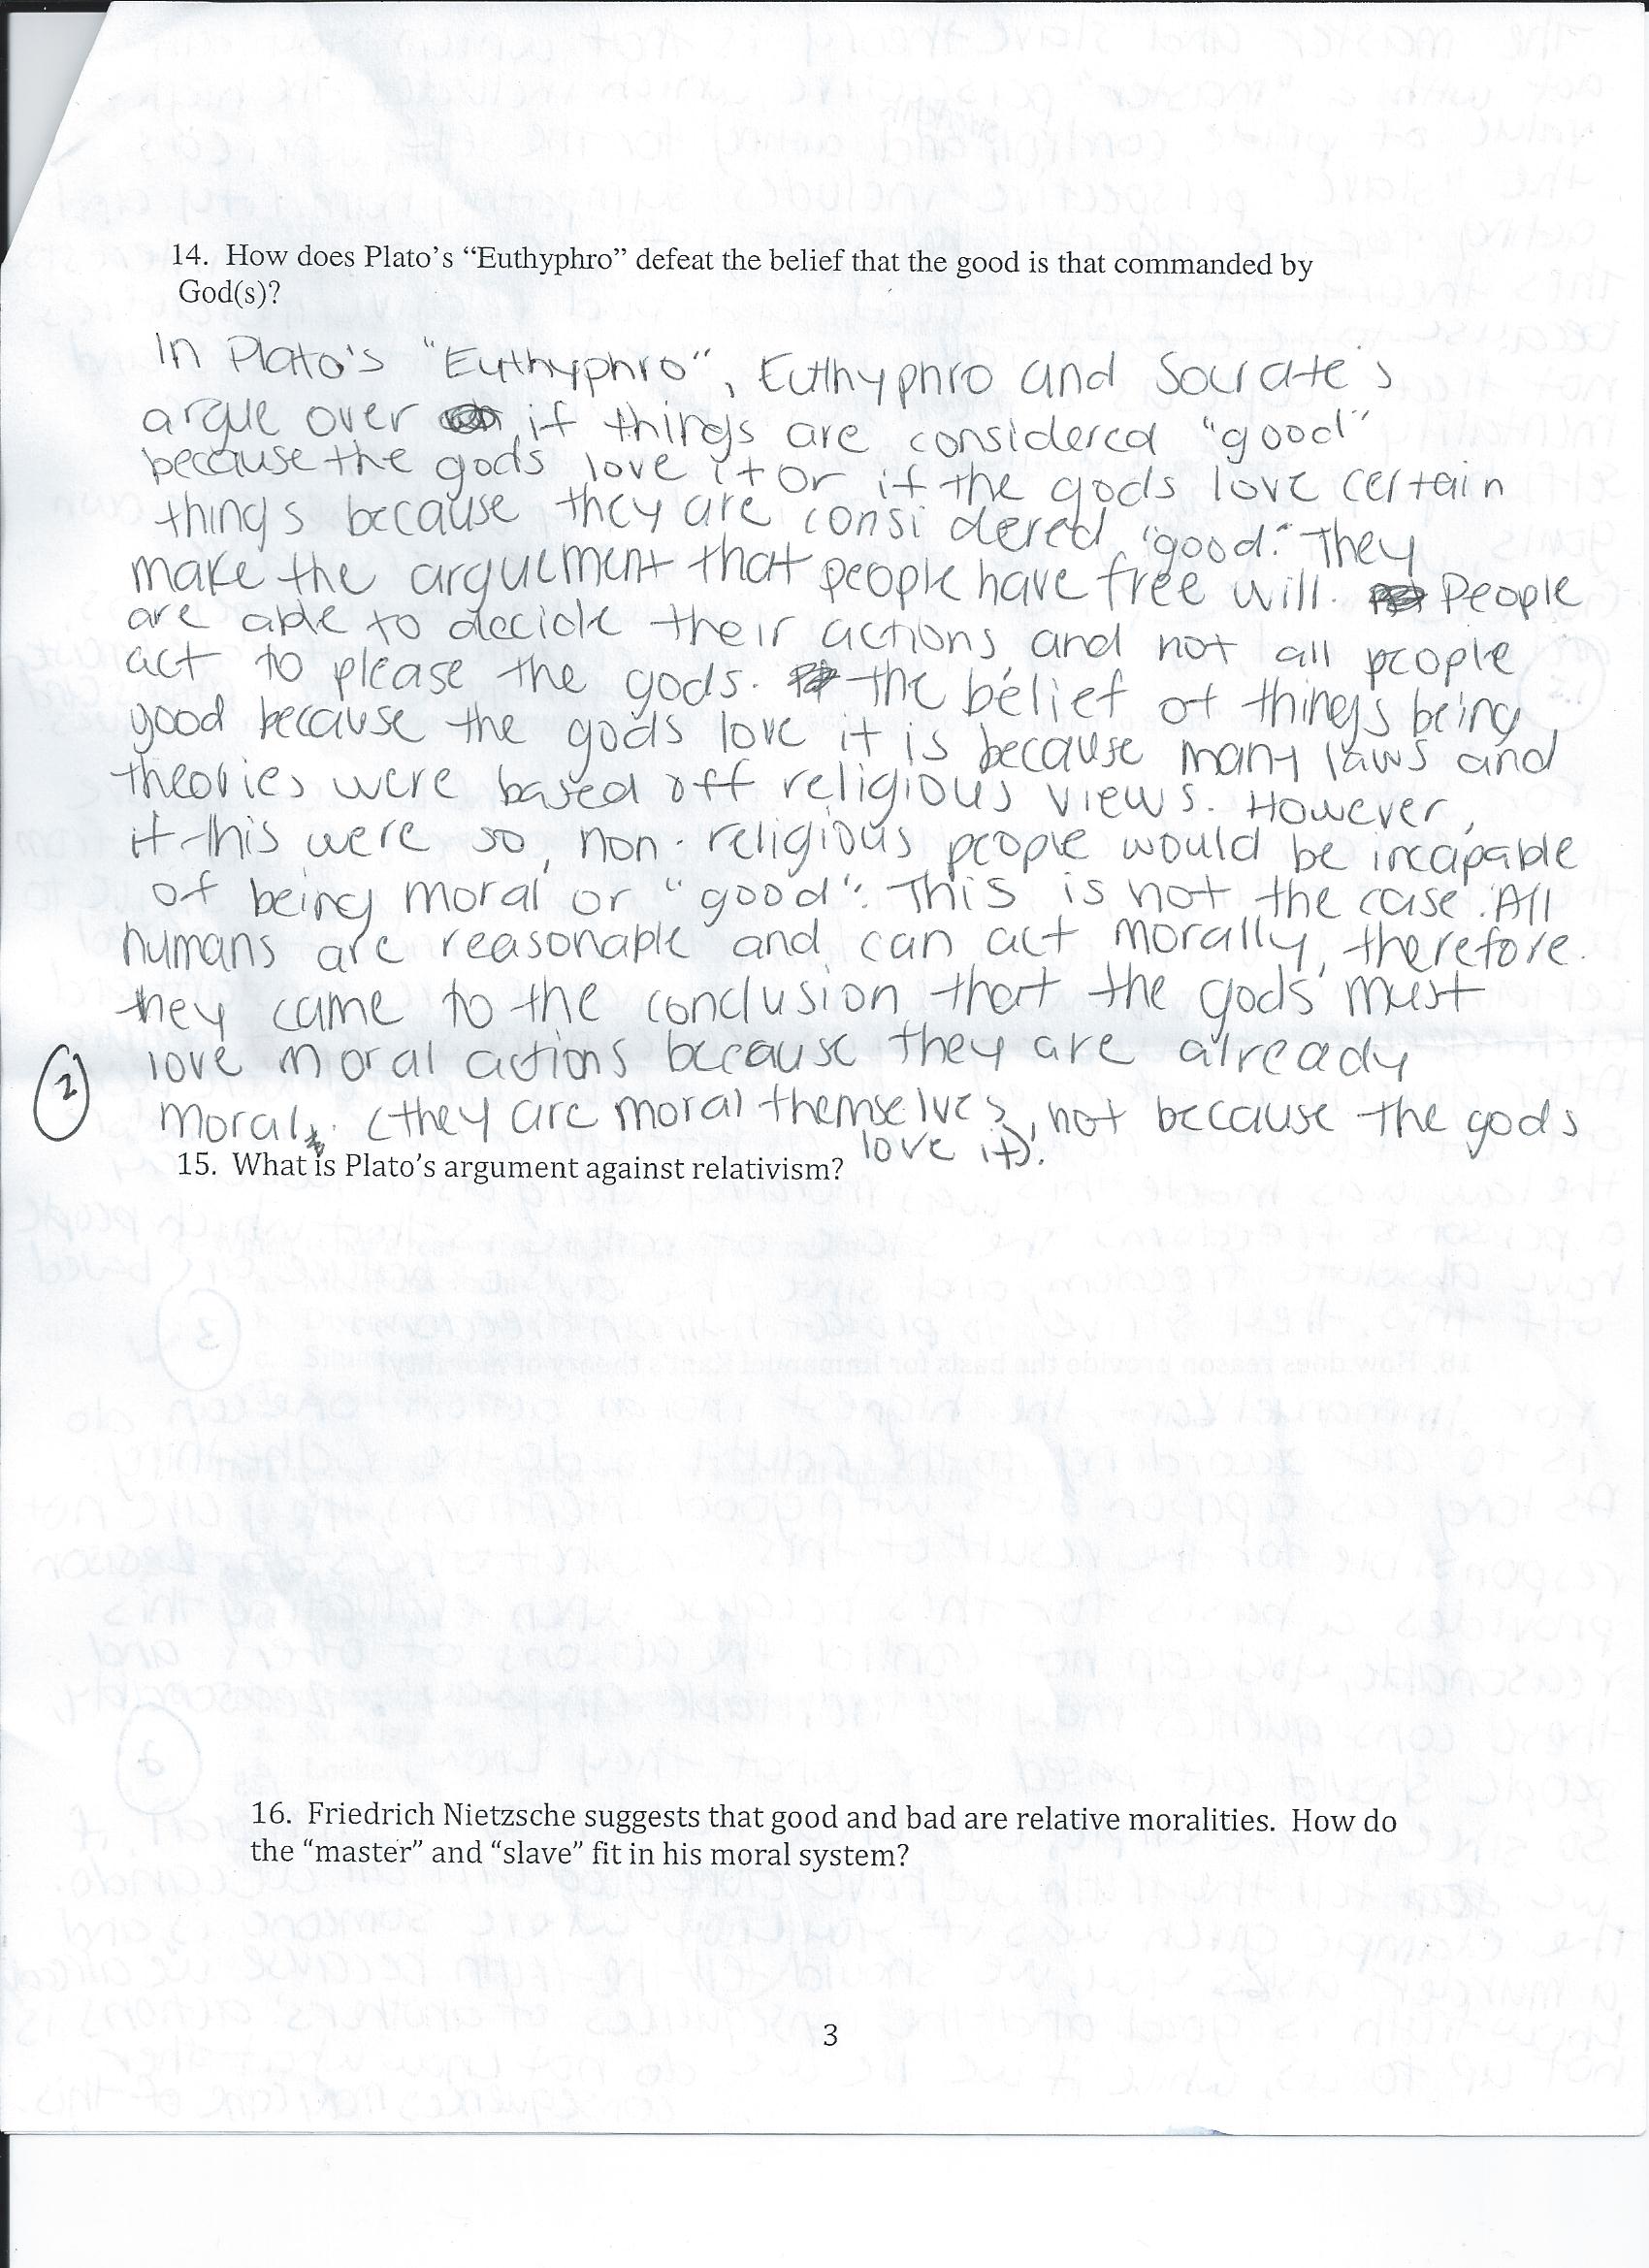 14. How does Plato's “Euthyphro” defeat the belief that the good is that commanded by
God(s)?
In Plato's "Euthyphro", Euthyphro and Socrate's
argue over if things are considered "good"
because the gods love it or if the gods love certain
things because they are considered "good." They
make the arguement that people have free will. People
are able to decide their actions, and not all people
act to please the gods. the belief of things being
good because the gods love it is because many laws and
theories were based off religious views. However,
if this were so, non-religious people would be incapable
of being moral or "good". This is not the case. All
humans are reasonable and can act morally, therefore
they came to the conclusion that the gods must
love moral actions because they are already
2
moral. (they are moral themselves, not because the gods
love it).
15. What is Plato's argument against relativism?
16. Friedrich Nietzsche suggests that good and bad are relative moralities. How do
the “master” and “slave” fit in his moral system?
3